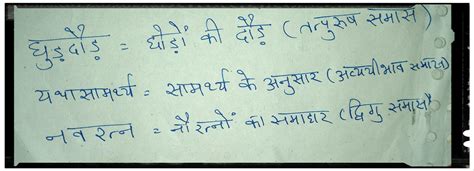 घुड़दौड़ = घोड़ों की दौड़ (तत्पुरुष समास)
यथासामर्थ्य = सामर्थ्य के अनुसार (अव्ययीभाव समास)
नवरत्न = नौ रत्नों का समाहार (द्विगु समास)